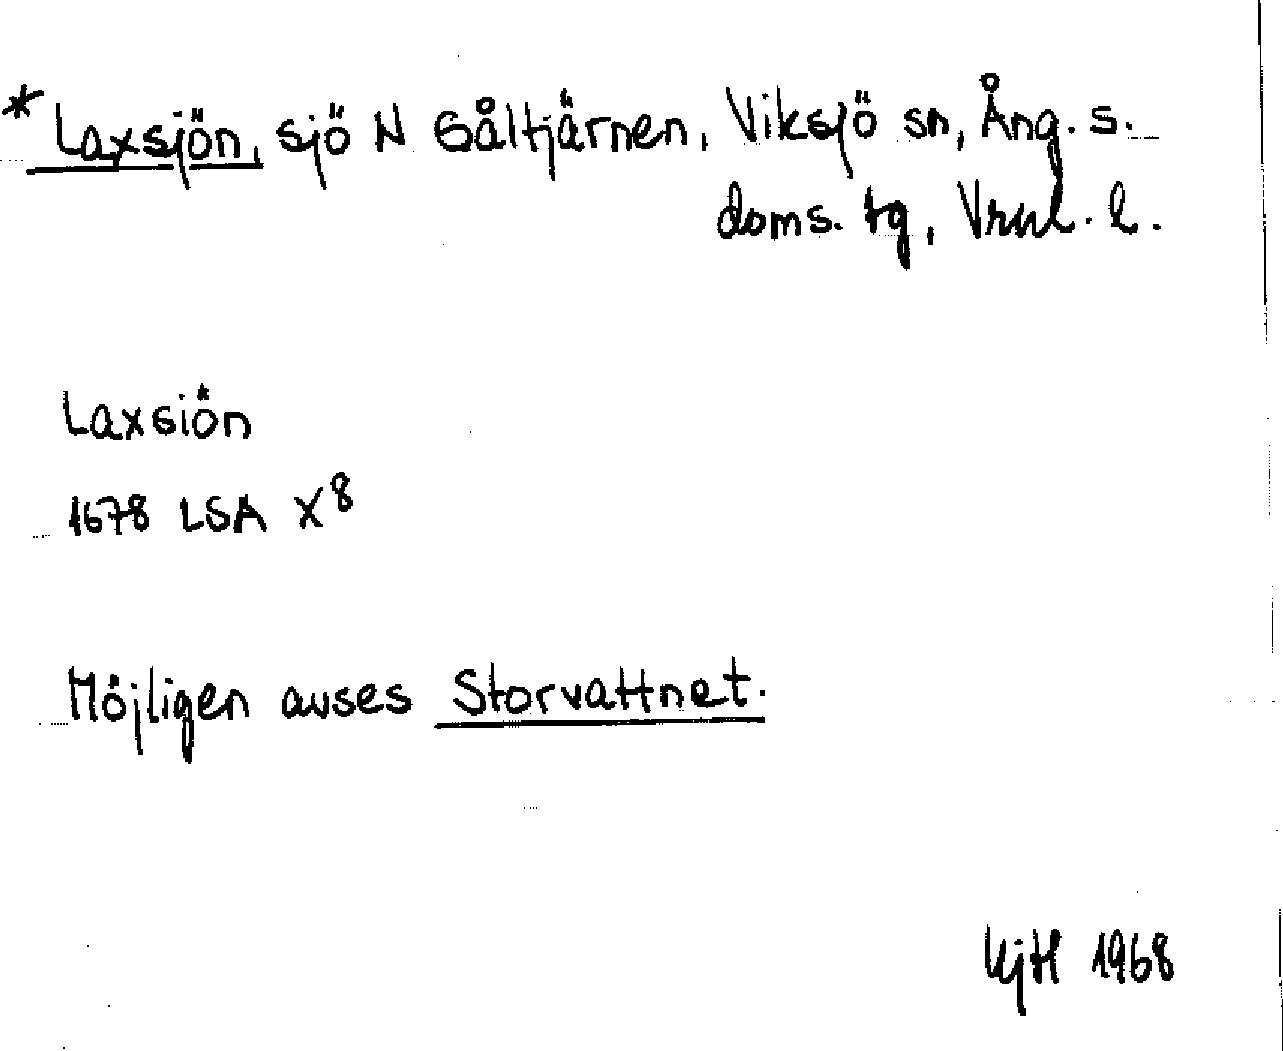 * Laxsjön, sjö N Såltjärnen, Viksjö sn, Ång. s.
doms. tg, Vrnl. l.
Laxsiön
1678 LSA X⁸
Möjligen avses Storvattnet.
KjH 1968